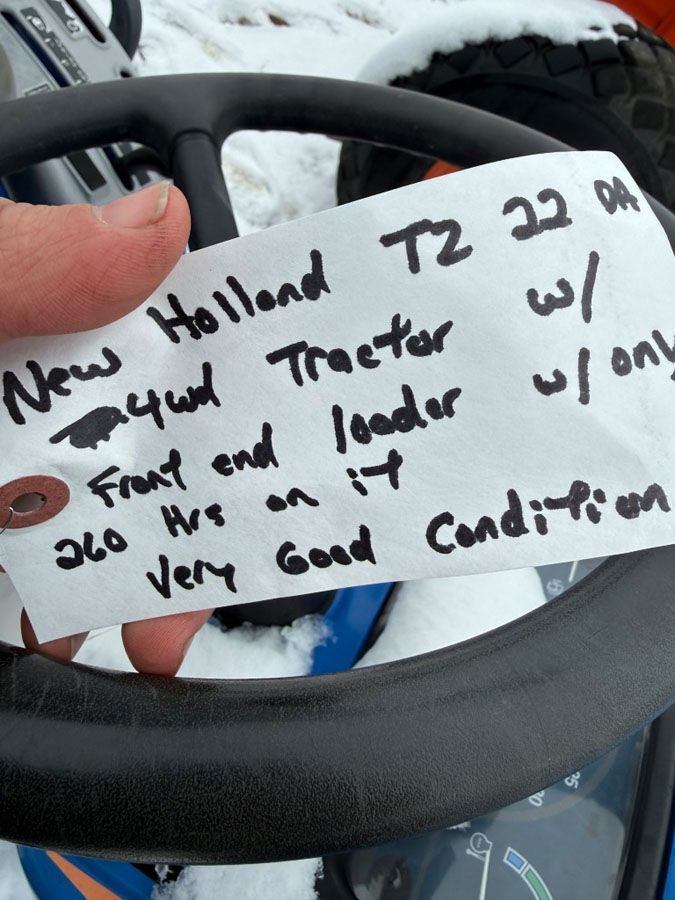 New Holland TZ 22 DA
4wd Tractor w/
Front end loader w/ only
260 Hrs on it
Very Good Condition